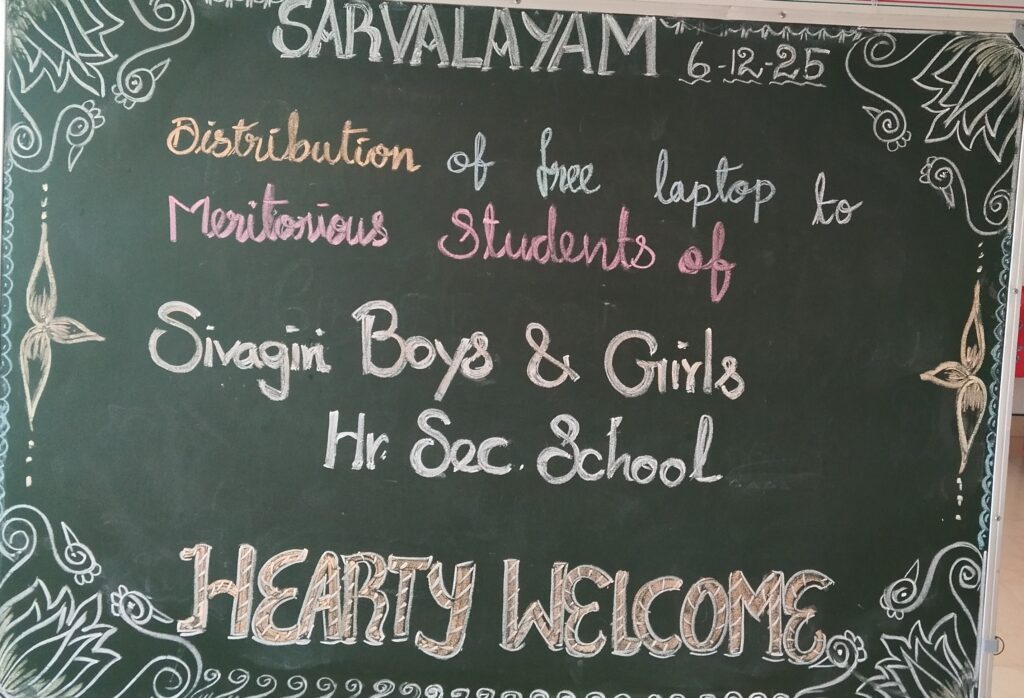 SARVALAYAM 6-12-25
Distribution of free laptop to
Meritorious Students of
Sivagiri Boys & Girls
Hr. Sec. School
HEARTY WELCOME